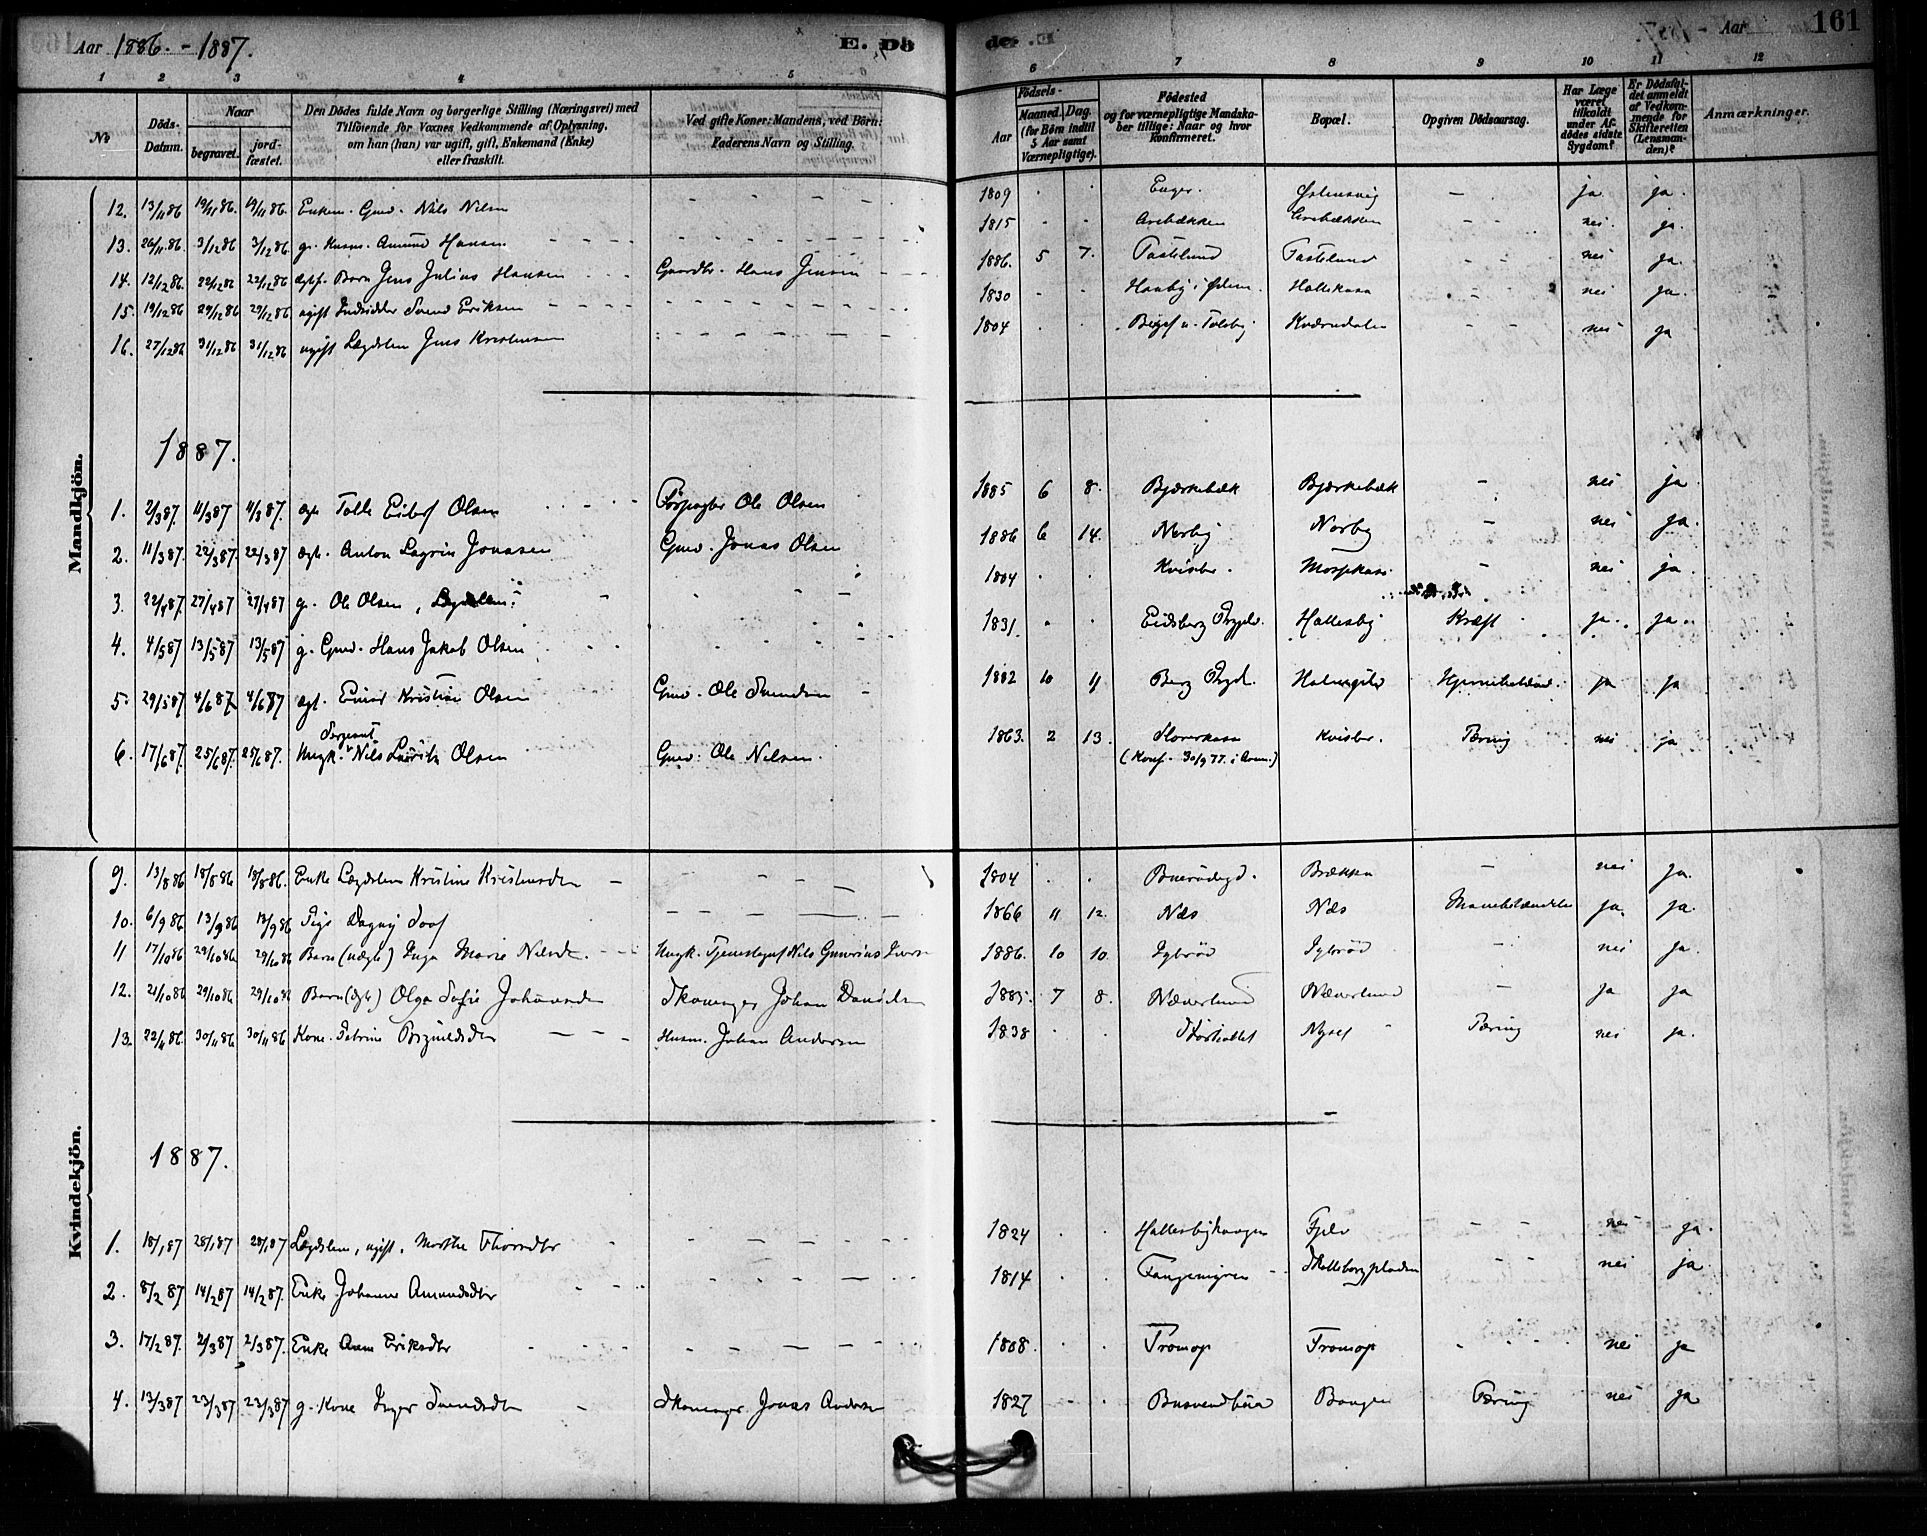 Aar 1886. - 1887.
E. Dö
de.
Aar
161
1 2 3 4 5 6 7 8 9 10 11 12
No
Döds-Datum.
Naar
begravet.
jord-fæstet.
Den Dödes fulde Navn og borgerlige Stilling (Næringsvei) med
Tilföiende for Voxnes Vedkommende af Oplysning,
om han (hun) var ugift, gift, Enkemand (Enke)
eller fraskilt.
Ved gifte Koner: Mandens, ved Börn:
Faderens Navn og Stilling.
Födsels-
Aar
Maaned. Dag.
(for Börn indtil
5 Aar samt
Værnepligtige).
Födested
og for værnepligtige Mandska-
ber tillige: Naar og hvor
Konfirmeret.
Bopæl.
Opgiven Dödsaarsag.
Har Læge
været
tilkaldt
under Af-
dödes sidste
Sygdom?
Er Dödsfal-
det anmeldt
af Vedkom-
mende for
Skifteretten
(Lensman-
den)?
Anmærkninger.
Mandkjön.
12. 13/11 86 19/11 86. 19/11 86. Enkem. Gmd. Nils Nilsen 1809 Enger. Østensvig ja ja.
13. 26/11 86. 3/12 86 3/12 86 g. Husm. Amund Hansen 1815 Arebækken Arebækken nei. ja.
14. 12/12 86. 22/12 86 22/12 86. Barn Jens Julius Hansen Gaardbr. Hans Jensen 1886. 5 7. Taatelund Taatelund nei ja.
15. 19/12 86 29/12 86 29/12 86. ugift Indsidder Svend Eriksen 1830 Haaby i Hallekasa nei ja.
16. 27/12 86 31/12 86 31/12 86 ugift Lægdslem Jens Kristensen 1804 Kværndalen nei ja
1887.
1. 2/3 87. 11/3 87 11/3 87. ægte Tolle Eilerf Olsen Ole Olsen 1885 6 8. Bjærkebæk Bjærkebæk nei ja.
2. 11/3 87. 22/3 87. 22/3 87 ægt. Anton Lagrin Jonasen Gmd. Jonas Olsen 1886 6 14. Nørby Nørby nei ja.
3. 22/4 87. 27/4 87 27/4 87 g. Ole Olsen, Lægdslem. 1804 Kvisler. nei ja.
4. 4/5 87 13/5 87 13/5 87 g. Gmd. Hans Jakob Olsen 1831. Eidsberg Prgjld. Hallesby Kræft ja. ja.
5. 29/5 87 4/6 87 4/6 87 ægt. Einar Kristian Olsen Gmd. Ole Svendsen 1882 10 4 Berg Prgjd. Holmegild ja ja
6. 17/6 87. 25/6 87. 25/6 87. Ungk. Sergeant Nils Lauritz Olsen Gmd. Ole Nilsen. 1863. 2 13. Kvisler. Tæring nei ja
(Konf. 30/9 77. i Arem.)
Kvindekjön.
9. 13/8 86 18/8 86 18/8 86. Enke Lægdslem Kristine Kristensdtr 1804 Buerødegd. Brække nei ja.
10. 6/9 86 13/9 86 13/9 86 Pige Dagny 1866 11 12. Næs Næs ja. ja.
11 17/10 86 29/10 86 29/10 86 Barn (uægte) Inga Marie Nilsdtr. Ungk. Nils Iversen 1886. 10 10. Igbrød Igbrød nei ja.
12. 21/10 86 29/10 86 29/10 86 Barn (ægte) Olga Sofie Johansdtr Skomager Johan Danielsen 1885. 7 8. Nævrlund Nævrlund ja ja
13. 22/11 86. 30/11 86 30/11 86 Kone Petrine Husm. Johan Andersen 1838 Nyset Tæring nei ja.
1887.
1. 18/1 87 28/1 87 28/1 87 Lægdslem, ugift, Marthe Thorsdtr 1824 Hallesbyhaugen Fjeld nei ja.
2. 8/2 87 14/2 87 14/2 87. Enke Johanne Amundsdtr 1814 Skolleborgpladsen nei ja.
3. 17/2 87. 2/3 87 2/3 87. Enke Anne Eriksdtr 1808. Tromop Tromop nei ja
4. 13/3 87 23/3 87 23/3 87 g. Kone Inger Svendsdtr Skomager Jonas Andersen 1827 Tæring nei ja